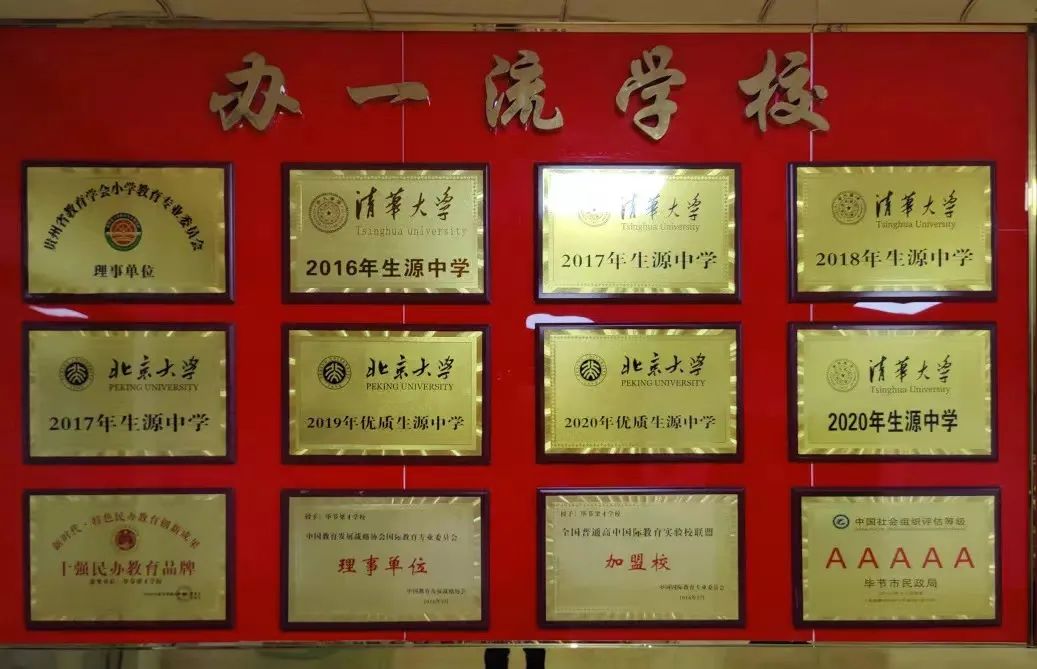 办一流学校
贵州省教育学会小学教育专业委员会
理事单位
清华大学
Tsinghua University
2016年生源中学
清华大学
Tsinghua University
2017年生源中学
清华大学
Tsinghua University
2018年生源中学
北京大学
PEKING UNIVERSITY
2017年生源中学
北京大学
PEKING UNIVERSITY
2019年优质生源中学
北京大学
PEKING UNIVERSITY
2020年优质生源中学
清华大学
Tsinghua University
2020年生源中学
新时代·特色民办教育创新成果
十强民办教育品牌
授予:毕节梁才学校
中国教育发展战略协会国际教育专业委员会
理事单位
授予:毕节梁才学校
全国普通高中国际教育实验校联盟
加盟校
中国社会组织评估等级
AAAAA
毕节市民政局